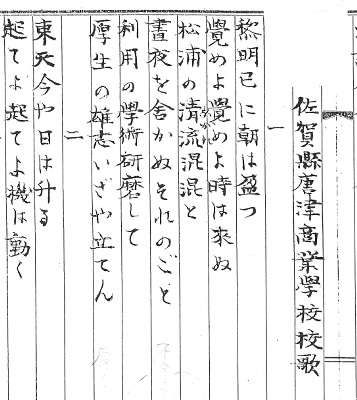 佐賀縣唐津商業學校校歌
一
黎明已に朝は盈つ
覺めよ覺めよ時は來ぬ
松浦の清流混混と
晝夜を舍かぬそれのごと
利用の學術研磨して
厚生の雄志いざや立てん
二
東天今や日は升る
起てよ起てよ機は動く